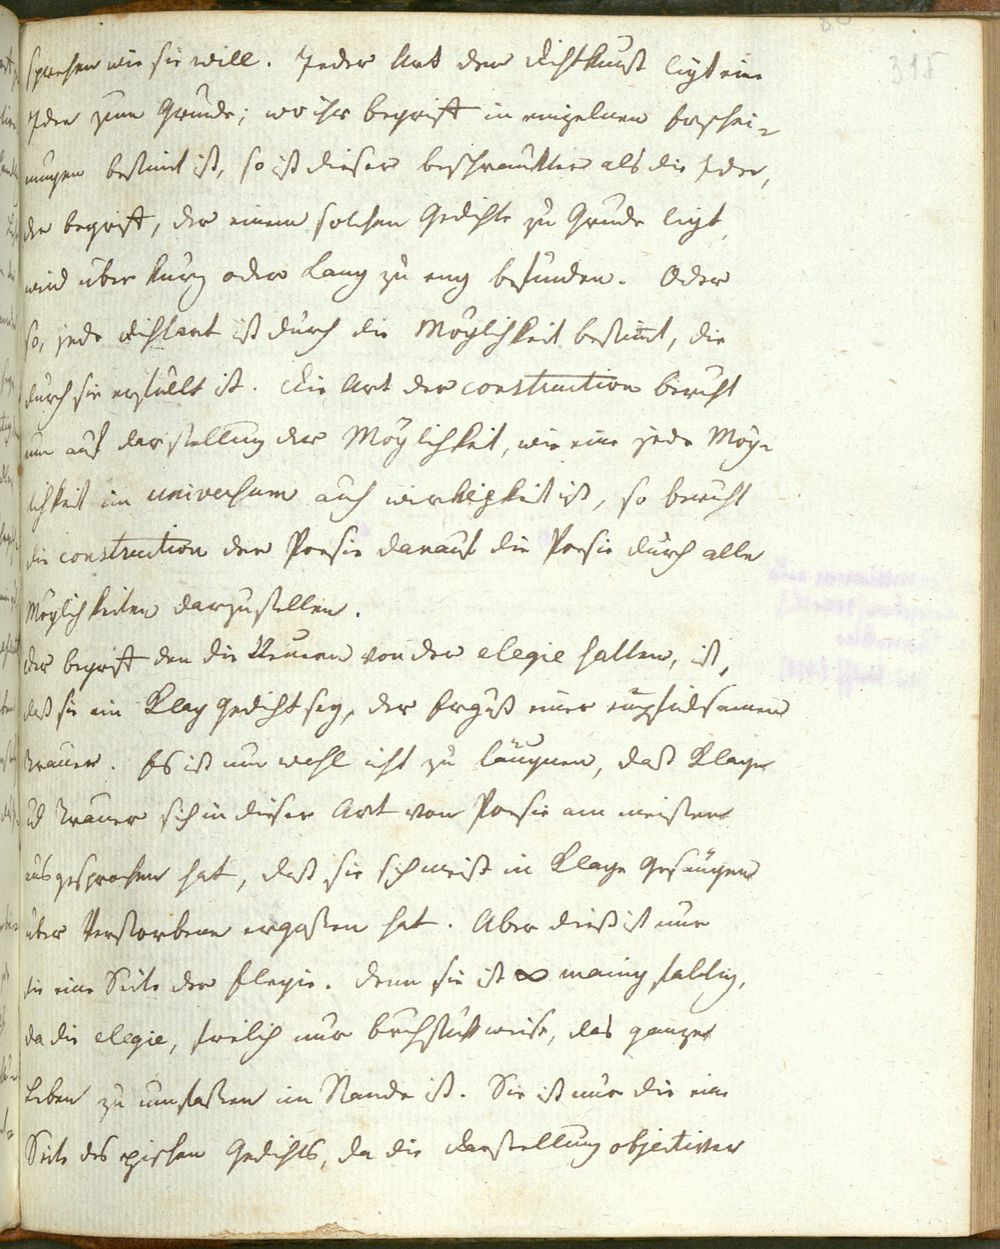 315
sprechen wie sie will. Jeder Art der Dichtkunst ligt eine
Idee zum Grunde; wo ihr begrift in einzelnen Erschei-
nungen bestimt ist, so ist dieser beschränkter als die Idee,
der begrift, der einem solchen Gedichte zu Grunde ligt,
wird über kurz oder Lang zu eng befunden. Oder
so, jede Dichtart ist durch die Möglichkeit bestimt, die
durch sie erfüllt ist. Die Art der construction beruht
nun auf darstellung der Möglichkeit, wie eine jede Mög-
lichkeit im universum auch wirkligkeit ist, so beruht
die construction der Poesie darauf die Poesie durch alle
Möglichkeiten darzustellen.
Der begrift den die Neuern von der elegie hatten, ist,
daß sie ein Klag Gedicht sey, der Erguß einer empfindsamen
Trauer. Es ist nun wohl nicht zu läugnen, daß Klage
und Trauer sich in dieser Art von Poesie am meisten
ausgesprochen hat, daß sie sich meist in Klage Gesängen
über Verstorbene ergossen hat. Aber dieß ist nur
die eine Seite der Elegie. denn sie ist ∞ manigfaltig,
da die elegie, freilich nur bruchstükweise, das ganze
Leben zu umfassen im Stande ist. Sie ist nur die eine
Seite des epischen Gedichts, da die darstellung objectiver